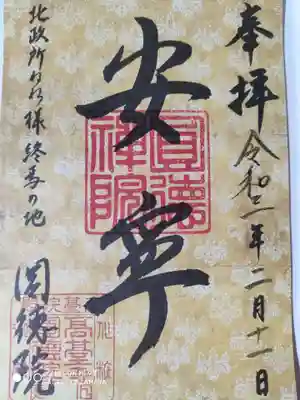 奉拝
令和二年二月十一日
安寧
圓徳禅院
北政所ねね様終焉の地
圓徳院